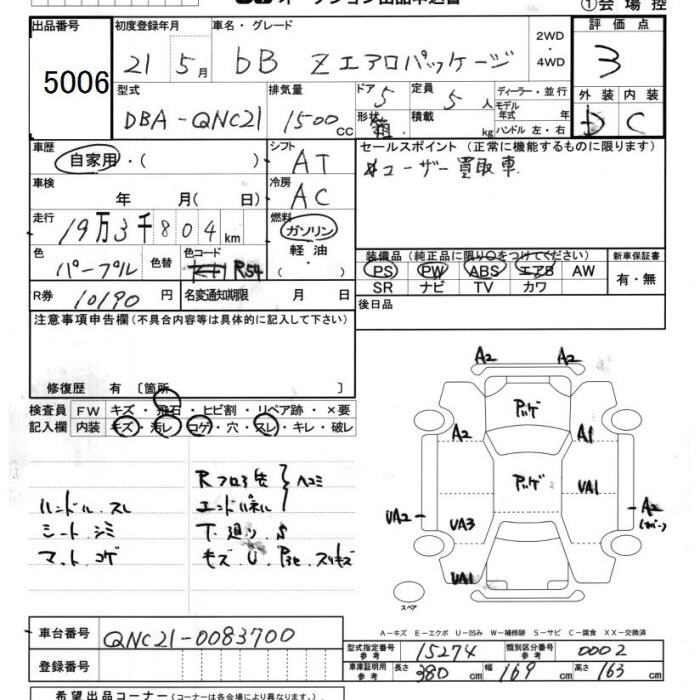 ①会場控
出品番号 初度登録年月 車名・グレード 2WD・4WD 評価点
5006 21 5月 bB Zエアロパッケージ 3
型式 排気量 ドア 5 定員 5人 ディーラー・並行 外装 内装
モデル年式 年
DBA-QNC21 1500cc 形状 箱 積載 kg ハンドル 左・右 D C
車歴 自家用・( ) シフト AT セールスポイント(正常に機能するものに限ります)
ユーザー買取車
車検 年 月( 日) 冷房 AC
走行 19万3千804km 燃料 ガソリン・軽油・( )
色 パープル 色替 色コード R54
装備品(純正品に限り○をつけてください) 新車保証書
PS PW ABS エアB AW 有・無
SR ナビ TV カワ
R券 10190円 名変通知期限 月 日
後日品
注意事項申告欄(不具合内容等は具体的に記入して下さい)
修復歴 有〔箇所 〕
検査員記入欄 FW キズ・飛石・ヒビ割・リペア跡・×要
内装 キズ・汚レ・コゲ・穴・スレ・キレ・破レ
Rフロア色 ヘコミ
ハンドル.スレ エンドパネル
シート.シミ T.廻り.S
マット.コゲ キズ.U.P3e.スリキズ
A2 A2
アッゲ
A2 A1
アッゲ
UA1
UA2 UA3 A2
UA1
スペア
A-キズ E-エクボ U-凹み W-補修跡 S-サビ C-腐食 XX-交換済
車台番号 QNC21-0083700
型式指定番号 参考 15274 類別区分番号 参考 0002
登録番号
車庫証明用 参考 長さ 380cm 幅 169cm 高さ 163cm
希望出品コーナー(コーナーは各会場により異なります。)